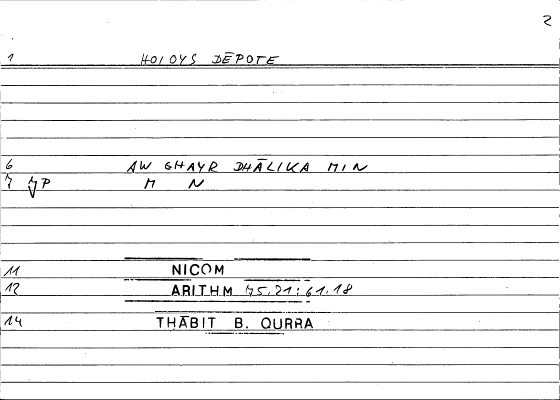 2
1 HOIOYS DĒPOTE
6 AW GHAYR DHĀLIKA MIN
7 P M N
11 NICOM
12 ARITHM 75.21:61.18
14 THĀBIT B. QURRA